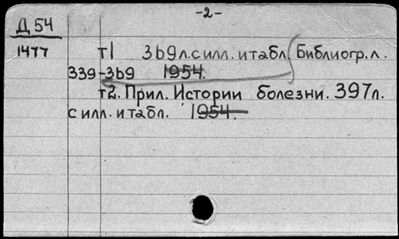 -2-
Д 54
1477 т1 369л.с илл. и табл. (Библиогр.л.
339-369 1954.
т2. Прил. Истории болезни. 397л.
с илл. и табл. 1954.